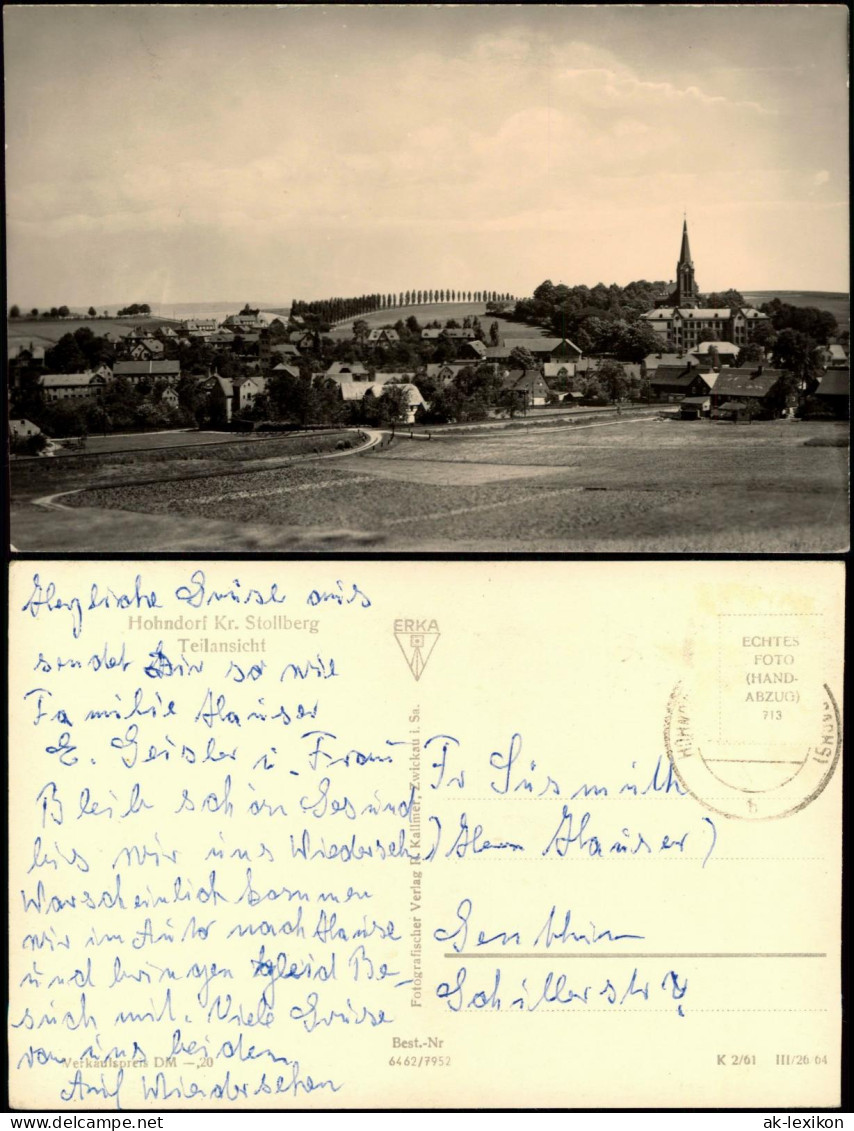 Herzliche Grüße aus
Hohndorf Kr. Stollberg
Teilansicht
sendet Dir so wie
Familie Hauser
E. Geisler u. Frau
Bleib schön Gesund
bis wir uns Wiederseh.
Warscheinlich kommen
wir im Auto nach Hause
und bringen gleich Be-
such mit. Viele Grüße
von uns beiden
Auf Wiedersehen
Verkaufspreis DM —,20
ERKA
Fotografischer Verlag R. Kallmer, Zwickau i. Sa.
Best.-Nr
6462/7952
ECHTES
FOTO
(HAND-
ABZUG)
713
HOHNDO
h
Fr Süsmuth
(Herrn Hauser)
Genthin
Schillerstr
K 2/61 III/26 64
ak-lexikon